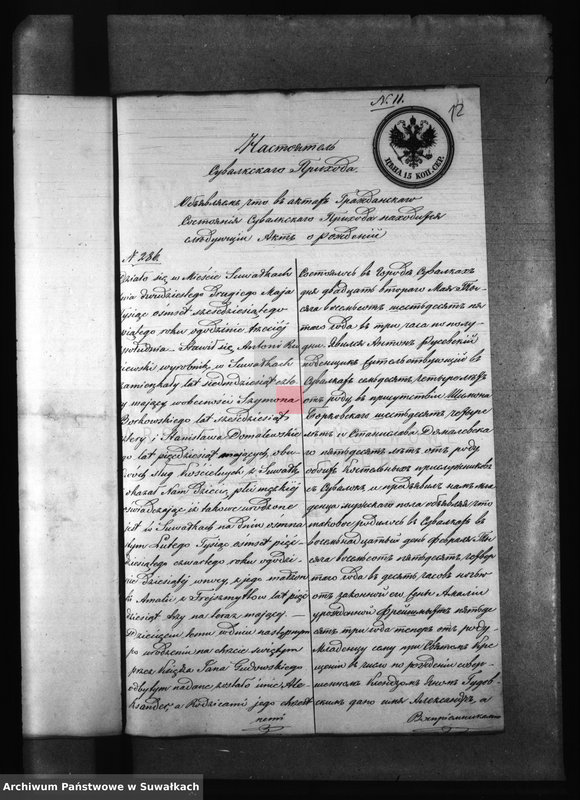 № 11.
12
ЦѢНА 15 КОП. СЕР.
Настоятель
Сувалкскаго Прихода.
Объявляемъ что въ актахъ Гражданскаго
Состоянія Сувалкскаго Прихода находится
слѣдующій Актъ о рожденіи
№ 236.
Działo się w Mieście Suwałkach
dnia dwudziestego drugiego Maja
tysiąc ośmset sześćdziesiątego
piątego roku o godzinie trzeciej
południu. Stawił się Antoni
wyrobnik w Suwałkach
zamieszkały lat siedmdziesiąt
mający w obecności Szymona
Borkowskiego lat sześćdziesiąt
cztery i Stanisława Domalewskie
go lat pięćdziesiąt mających, obu
dwóch sług kościelnych z Suwałk
okazał Nam Dziecię płci męzkiej
oświadczając iż takowe urodzone
jest w Suwałkach na dniu ośmna
stym Lutego Tysiąc ośmset pięć
dziesiątego czwartego roku o godzi-
nie dziesiątej w nocy z jego małżon
ki Amalii z lat pięć
dziesiąt trzy na teraz mającej —
Dziecięciu temu w dniu następnym
po urodzeniu na chrzcie świętym
przez Księdza Jana Gudowskiego
odbytym nadane zostało imię Ale-
ksander, a Rodzicami jego chrzest
nemi
Состоялось въ Городѣ Сувалкахъ
дня двадцать втораго Мая Ты-
сяча восемьсотъ шестьдесятъ пя
таго года въ три часа по полу-
дни. Явился Антонъ
поденщикъ жительствующій въ
Сувалкахъ семьдесятъ четыре лѣтъ
отъ роду въ присутствіи Шимона
Борковскаго шестьдесятъ четыре
лѣтъ и Станислава Домалевска
го пятьдесятъ лѣтъ отъ роду
обоихъ Костельныхъ прислужниковъ
съ Сувалокъ и предъявилъ намъ мла
денца мужескаго пола объявляя что
таковое родилось въ Сувалкахъ въ
восемьнадцатый день февраля Ты
сяча восемьсотъ пятьдесятъ четвер
таго года въ десять часовъ ночью
отъ законной его жены Амаліи
урожденной пятьде
сятъ три года теперь отъ роду.
Младенцу сему при Святомъ Кре
щеніи въ число по рожденіи совер-
шенномъ Ксендзомъ Яномъ Гудов-
скимъ дано имя Александръ, а
Воспріемниками
Archiwum Państwowe w Suwałkach